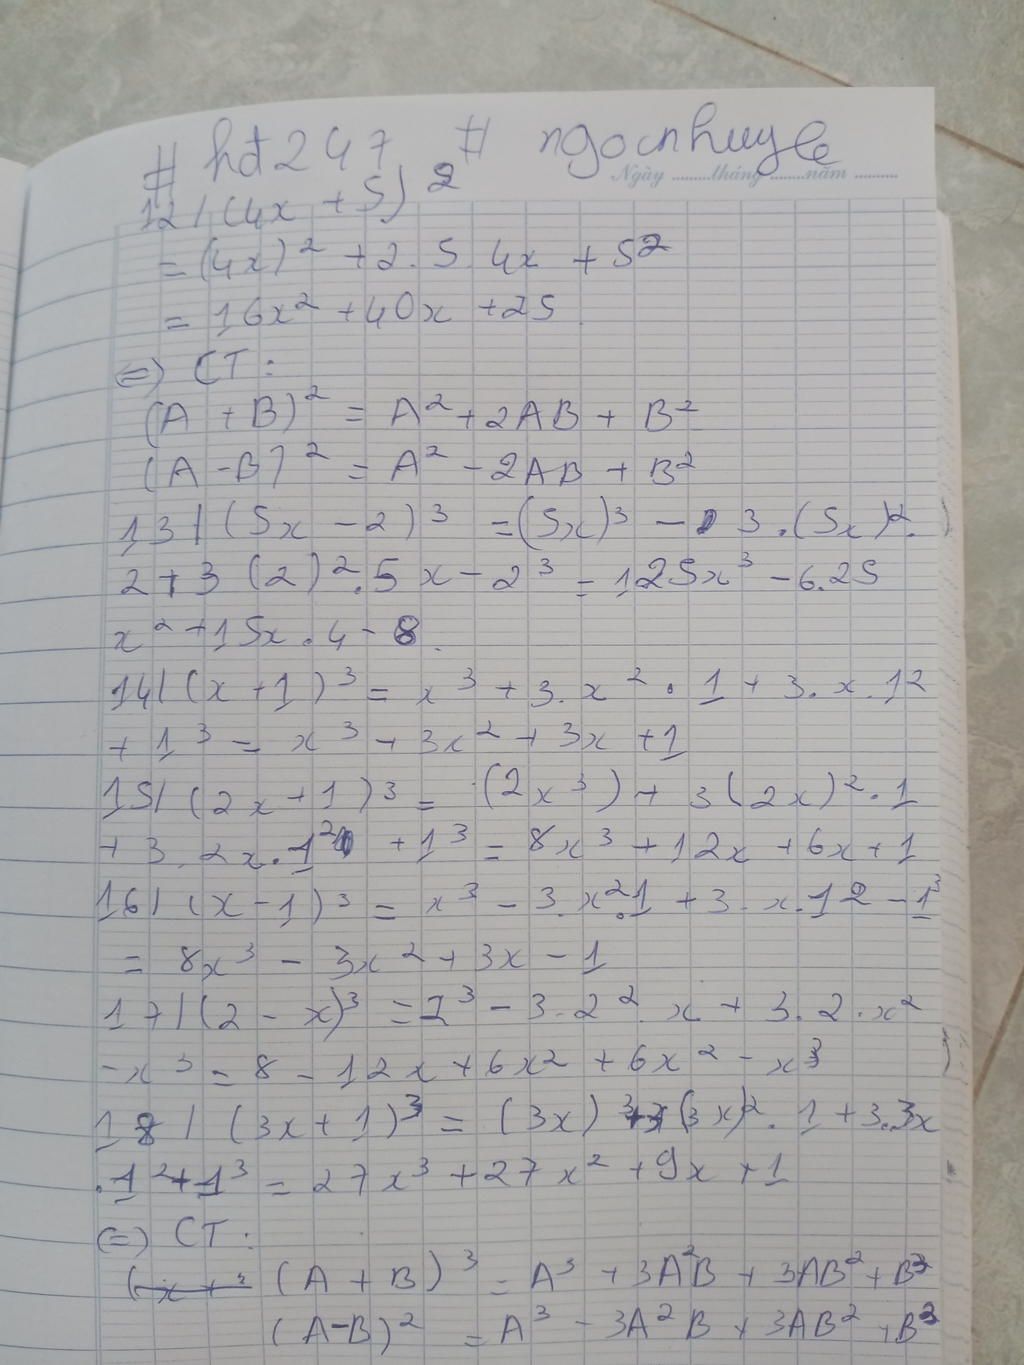 # hđ247 # ngocnhuyle
Ngày ........tháng ........năm ..........
12/ (4x + 5)²
= (4x)² + 2. 5. 4x + 5²
= 16x² + 40x + 25.
⇔) CT:
(A + B)² = A² + 2AB + B²
(A - B)² = A² - 2AB + B²
13/ (5x - 2)³ = (5x)³ - 3 .(5x)².
2 + 3 (2)².5x - 2³ = 125x³ - 6.25
x² + 15x . 4 - 8.
14/ (x + 1)³ = x³ + 3. x² . 1 + 3. x. 12
+ 1³ = x³ + 3x² + 3x + 1
15/ (2x + 1)³ = (2x³) + 3(2x)² . 1
+ 3. 2x. 1² + 1³ = 8x³ + 12x + 6x + 1
16/ (x - 1)³ = x³ - 3. x².1 + 3. x. 12 - 1³
= 8x³ - 3x² + 3x - 1
17/ (2 - x)³ = 2³ - 3. 2². x + 3. 2. x²
- x³ = 8 - 12x + 6x2 + 6x² - x³
18/ (3x + 1)³ = (3x)³ + 3 (3x)². 1 + 3.3x
.1² + 1³ = 27x³ + 27x² + 9x + 1
(=) CT:
(x + ³ (A + B)³ = A³ + 3A²B + 3AB² + B³
(A - B)² = A³ - 3A²B + 3AB² + B³